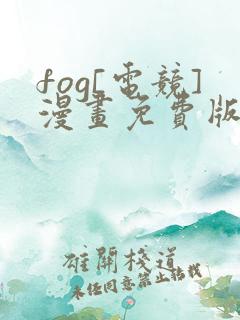 fog[電競]
漫畫免費版
雄關棧道
未經同意禁止轉載